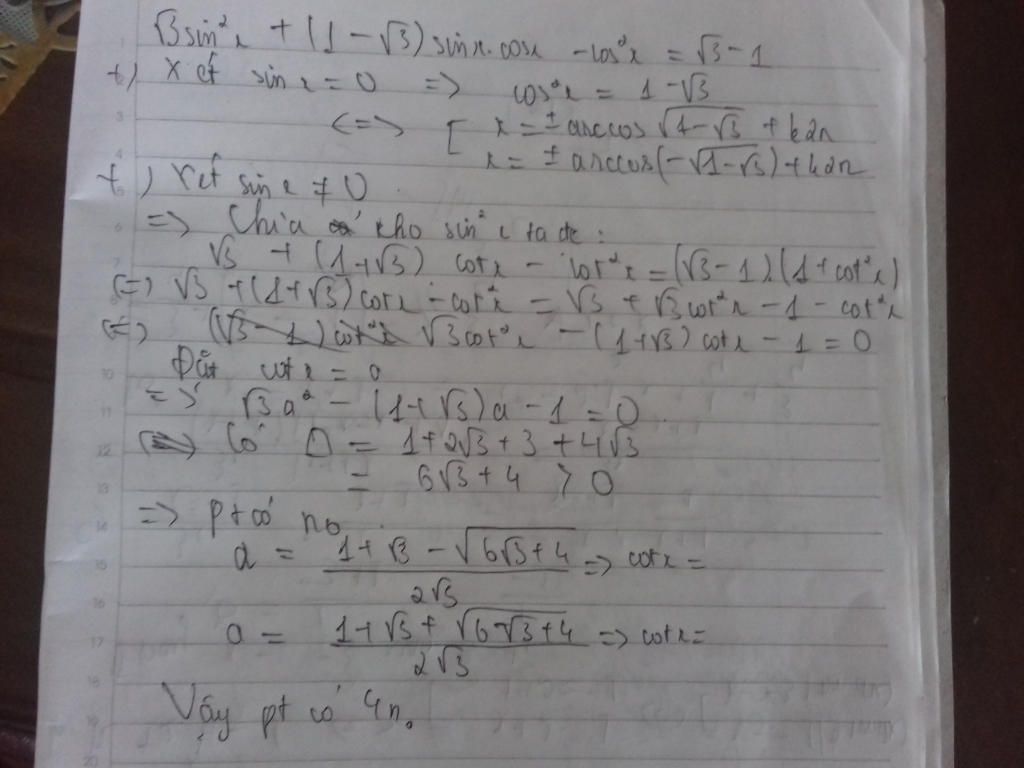 √3 sin²x + (1 - √3) sinx.cosx - cos²x = √3 - 1
+) Xét sin x = 0 => cos²x = 1 - √3
<=> [ x = ± arccos √(1-√3) + k2π
x = ± arccos(-√(1-√3)) + k2π
+) Xét sin x ≠ 0
=> Chia cả 2 vế cho sin²x ta đc:
√3 + (1+√3) cotx - cot²x = (√3-1).(1+cot²x)
<=> √3 + (1+√3) cotx - cot²x = √3 + √3cot²x - 1 - cot²x
<=> √3cot²x - (1+√3) cotx - 1 = 0
Đặt cotx = a
=> √3a² - (1+√3)a - 1 = 0
Có Δ = 1 + 2√3 + 3 + 4√3
= 6√3 + 4 > 0
=> Pt có no
a = (1 + √3 - √(6√3+4)) / 2√3 => cotx =
a = (1 + √3 + √(6√3+4)) / 2√3 => cotx =
Vậy pt có 4 no